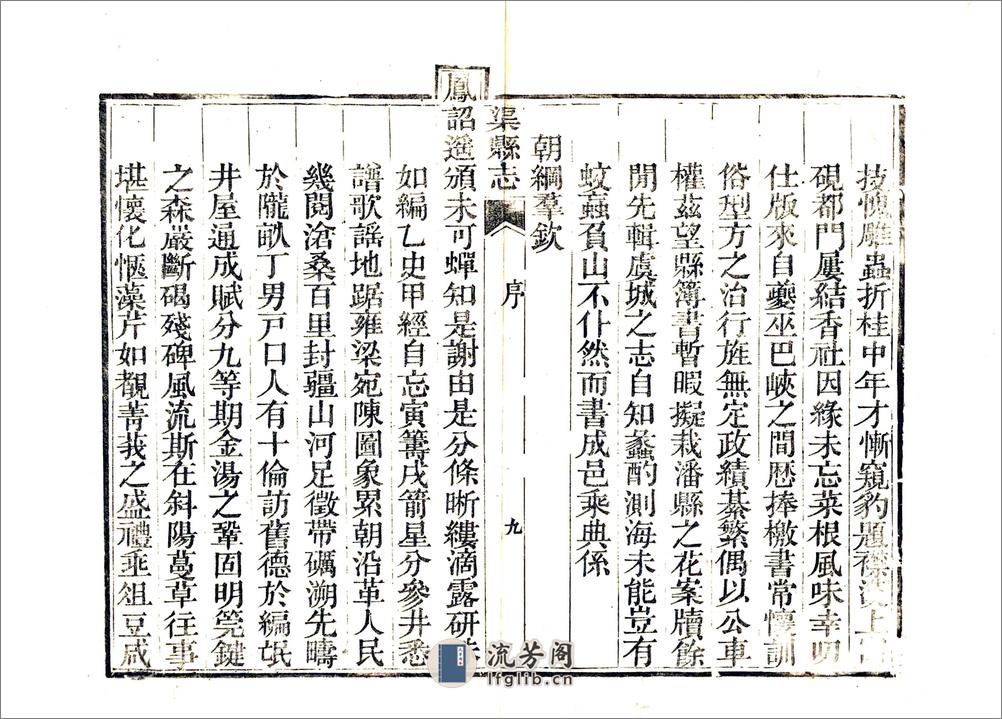 技愧雕蟲折桂中年才慚窺豹題襟漢上
硯都門屢結香社因緣未忘菜根風味幸叨
仕版來自夔巫巴峽之間歷捧檄書常懷訓
俗型方之治行旌無定政績綦繁偶以公車
權茲望縣簿書暫暇擬栽潘縣之花案牘餘
閒先輯虞城之志自知蠡酌測海未能豈有
蚊蝱負山不仆然而書成邑乘典係
朝綱羣欽
渠縣志
序
九
鳳詔遥頒未可蟬知是謝由是分條晰縷滴露研
如編乙史甲經自忘寅篝戌箭星分參井悉
譜歌謡地踞雍梁宛陳圖象累朝沿革人民
幾閱滄桑百里封疆山河足徵帶礪溯先疇
於隴畝丁男戸口人有十倫訪舊德於編氓
井屋通成賦分九等期金湯之鞏固明筦鍵
之森嚴斷碣殘碑風流斯在斜陽蔓草往事
堪懷化愜藻芹如覩菁莪之盛禮垂俎豆咸
流芳阁
lfglib.cn